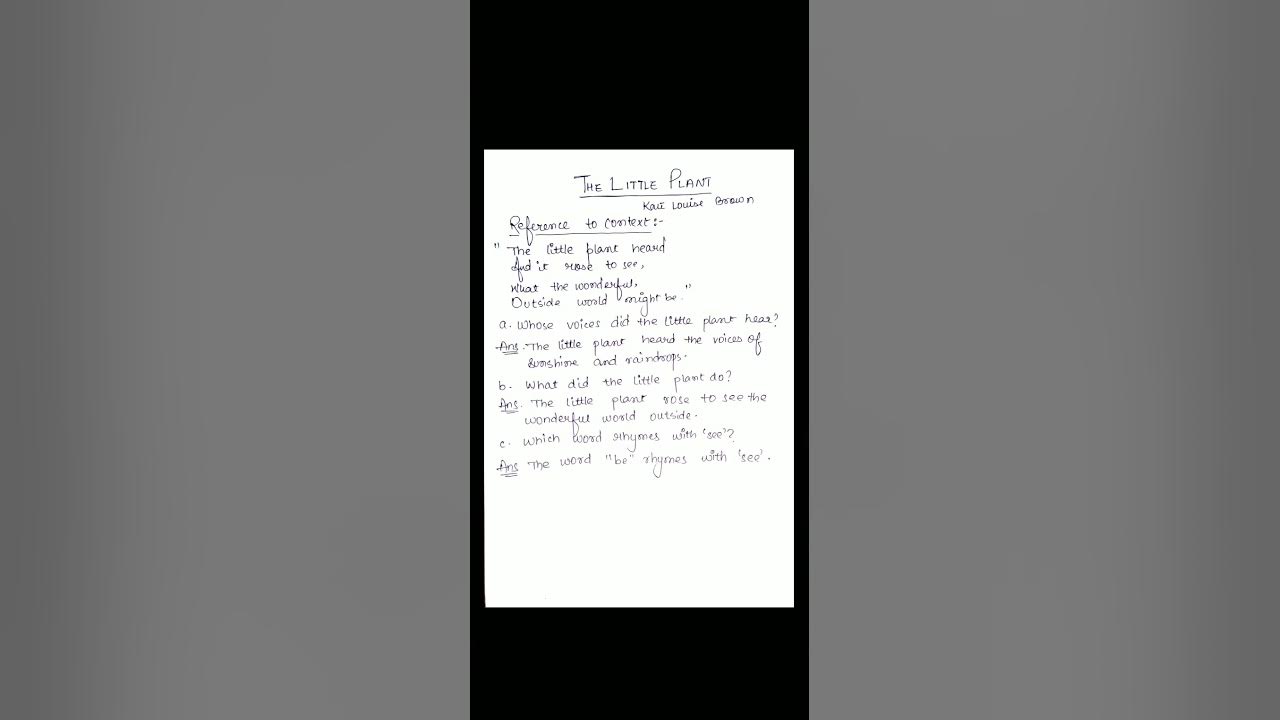 THE LITTLE PLANT
Kate Louise Brown
Reference to context:-
"The little plant heard
And it rose to see,
What the wonderful,
Outside world might be."
a. Whose voices did the little plant hear?
Ans. The little plant heard the voices of
sunshine and raindrops.
b. What did the little plant do?
Ans. The little plant rose to see the
wonderful world outside.
c. Which word rhymes with 'see'?
Ans The word "be" rhymes with 'see'.